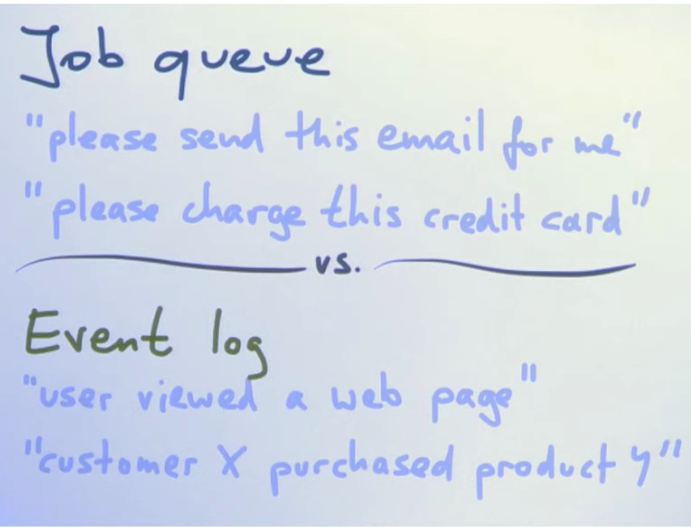 Job queue
"please send this email for me"
"please charge this credit card"
vs.
Event log
"user viewed a web page"
"customer X purchased product y"